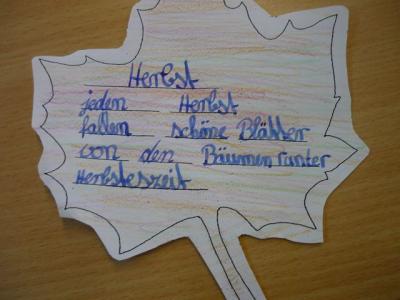 Herbst
jeden Herbst
fallen schöne Blätter
von den Bäumen runter
Herbsteszeit